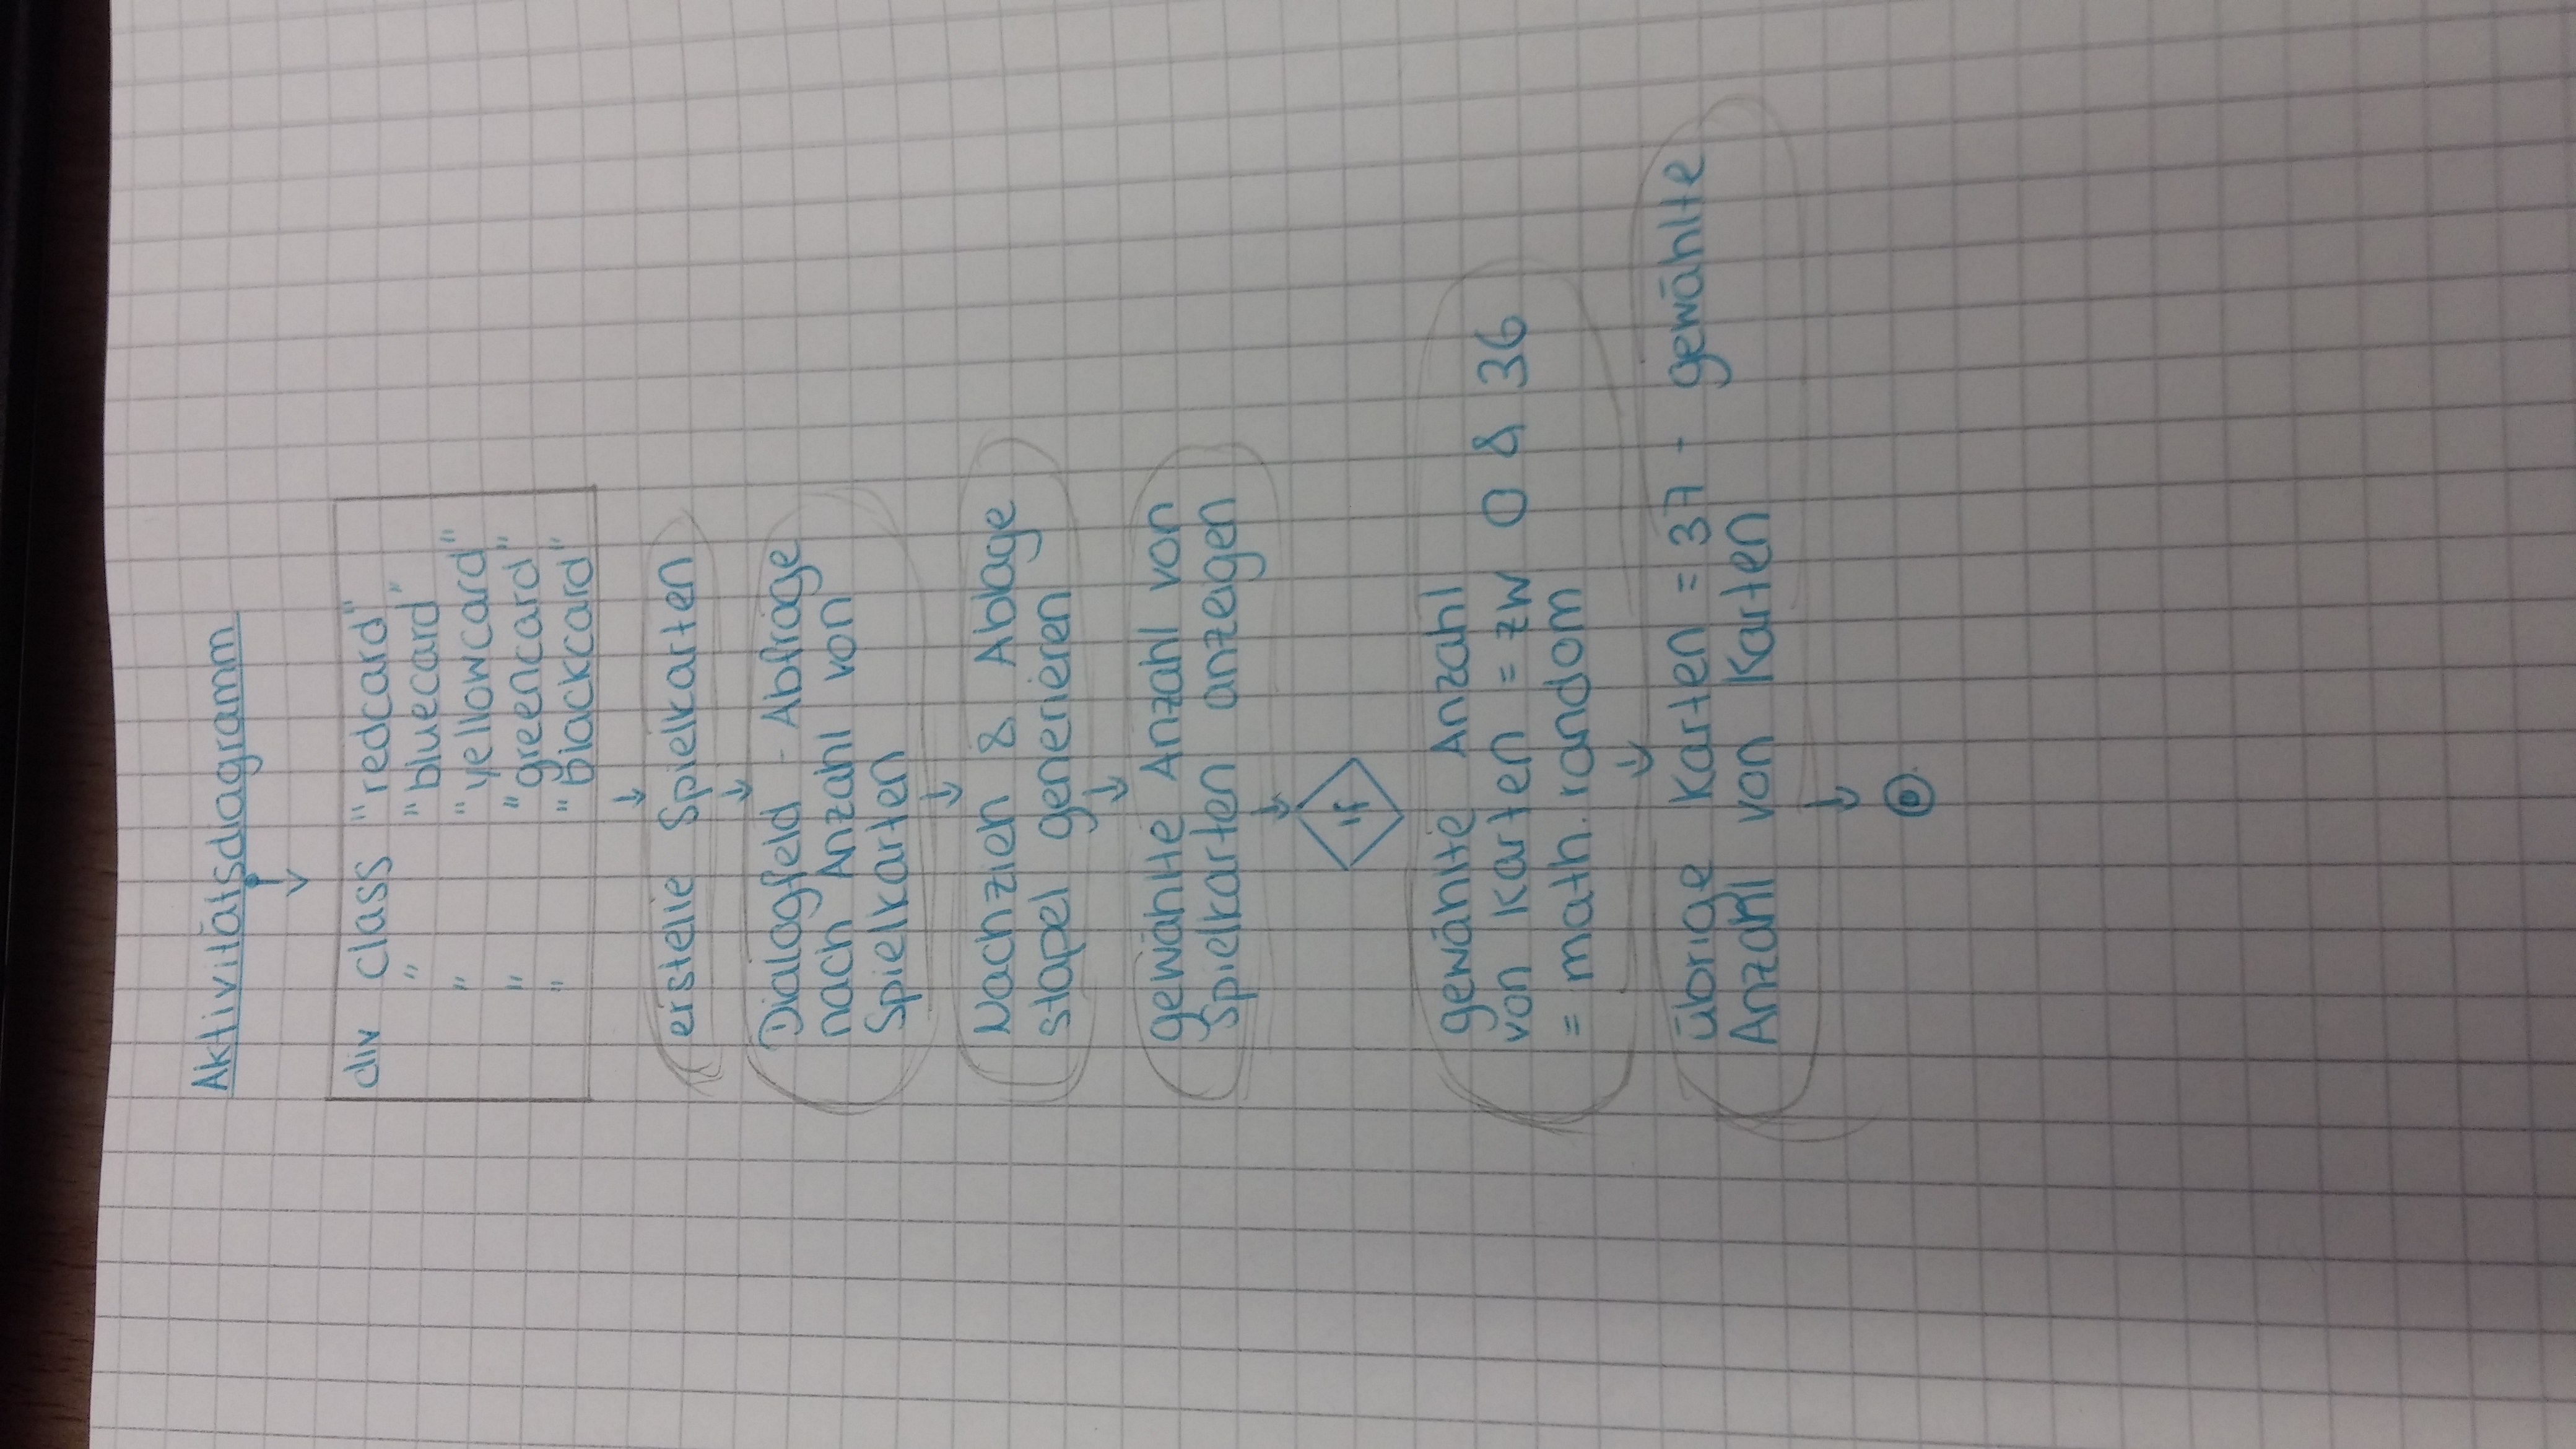 Aktivitätsdagramm
div class "redcard"
" "bluecard"
" "yellowcard"
" "greencard"
" "blackcard"
erstelle Spielkarten
Dialogfeld - Abfrage
nach Anzahl von
Spielkarten
Nachzieh & Ablage
stapel generieren
gewählte Anzahl von
Spielkarten anzeigen
if
gewählte Anzahl
von Karten = zw 0 & 36
= math.random
übrige Karten = 37 - gewählte
Anzahl von Karten